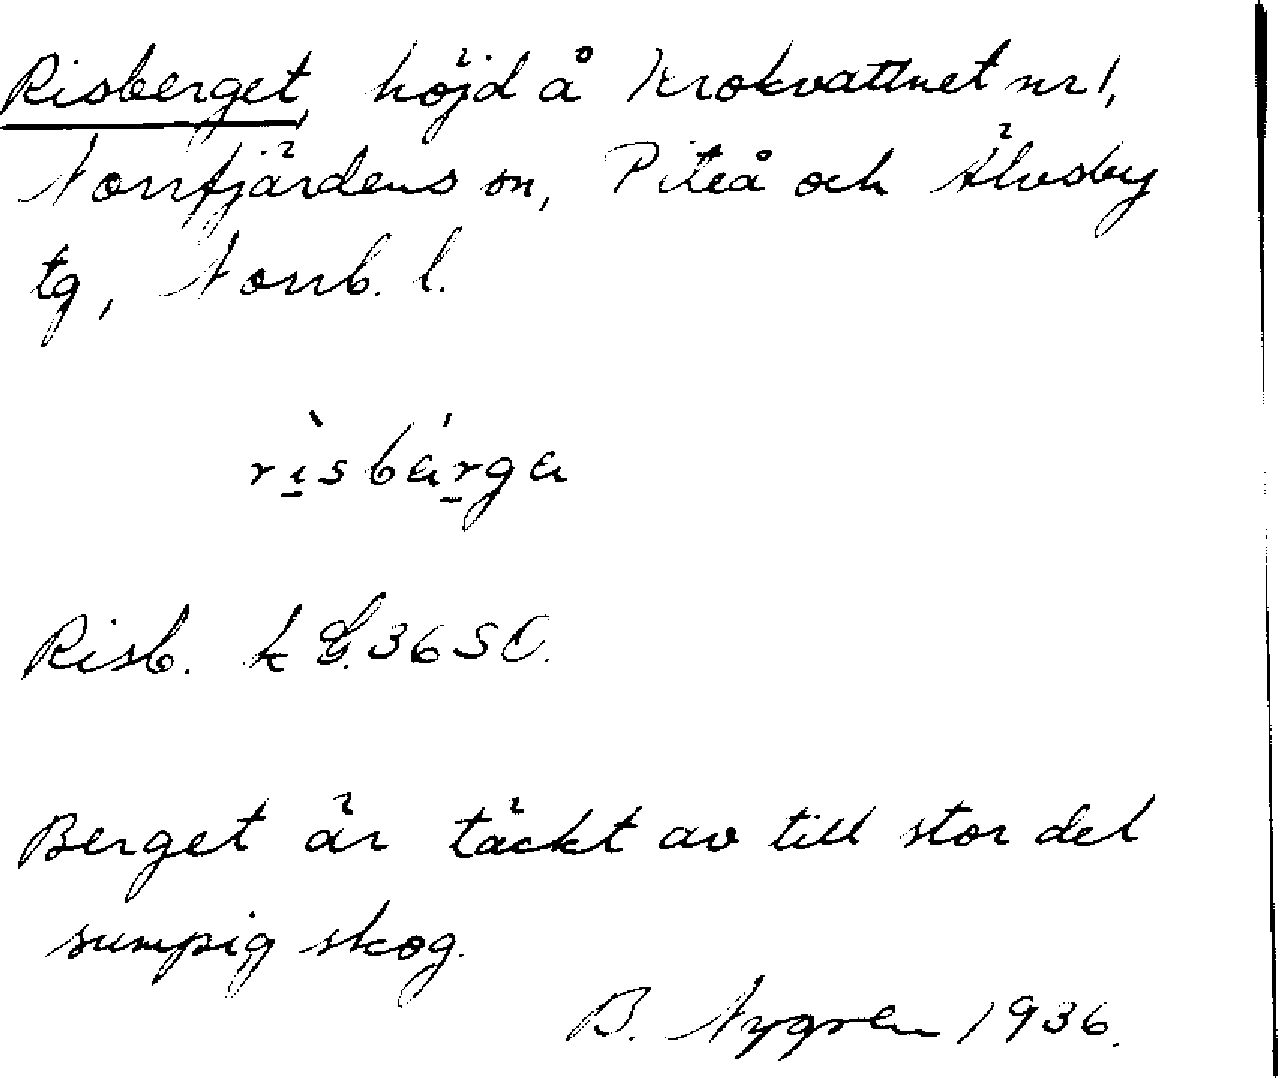 Risberget, höjd å Krokvattnet nr 1,
Norrfjärdens sn, Piteå och Älvsby
tg, Norrb. l.
rìsbárga
Risb. k G. 36 SO.
Berget är täckt av till stor del
sumpig skog.
B. Nygren 1936.